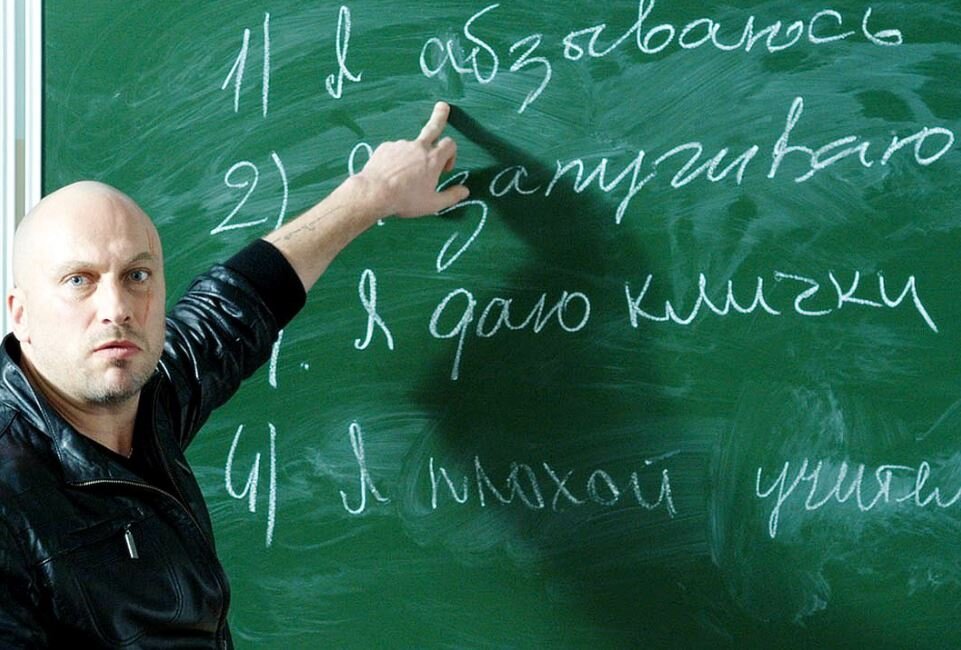 1) Я абзываюсь
2) Я запугиваю
. Я даю клички
4) Я плохой учител